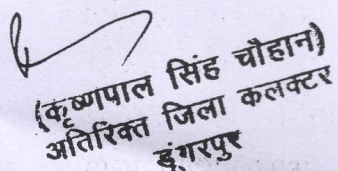 (कृष्णपाल सिंह चौहान)
अतिरिक्त जिला कलक्टर
डूंगरपुर